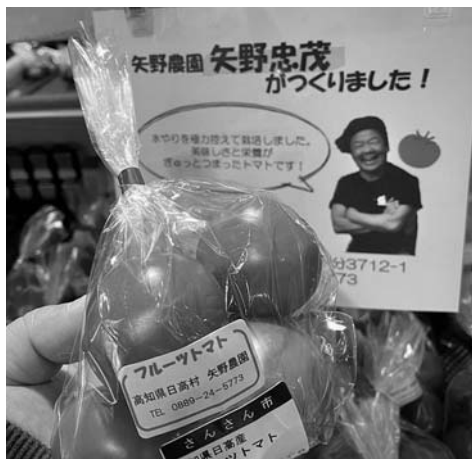 矢野農園 矢野忠茂
がつくりました！
水やりを極力控えて栽培しました。
美味しさと栄養が
ぎゅっとつまったトマトです！
3712-1
73
フルーツトマト
高知県日高村 矢野農園
TEL 0889-24-5773
さんさん市
県日高産
ツトマト